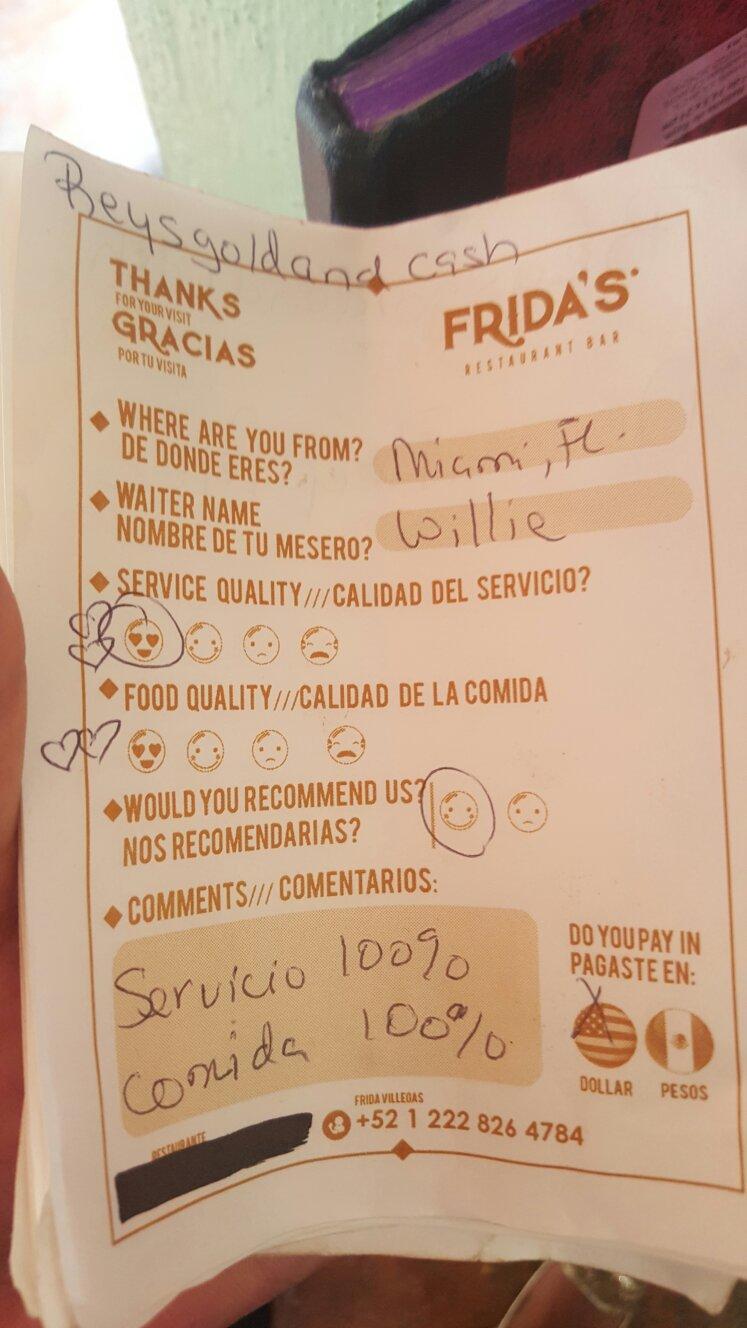 Reysgoldand cash
THANKS
FOR YOUR VISIT
GRACIAS
POR TU VISITA
FRIDA'S
RESTAURANT BAR
WHERE ARE YOU FROM?
DE DONDE ERES?
Miami, FL.
WAITER NAME
NOMBRE DE TU MESERO?
Willie
SERVICE QUALITY///CALIDAD DEL SERVICIO?
FOOD QUALITY///CALIDAD DE LA COMIDA
WOULD YOU RECOMMEND US?
NOS RECOMENDARIAS?
COMMENTS/// COMENTARIOS:
Servicio 100%
Comida 100%
DO YOU PAY IN
PAGASTE EN:
DOLLAR PESOS
FRIDA VILLEGAS
+52 1 222 826 4784
RESTAURANTE